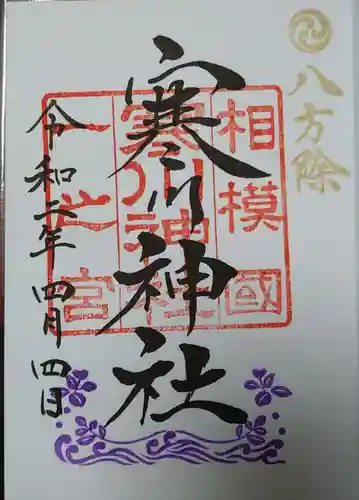 八方除
相模國
寒川神社
一之宮
寒川神社
令和二年四月四日